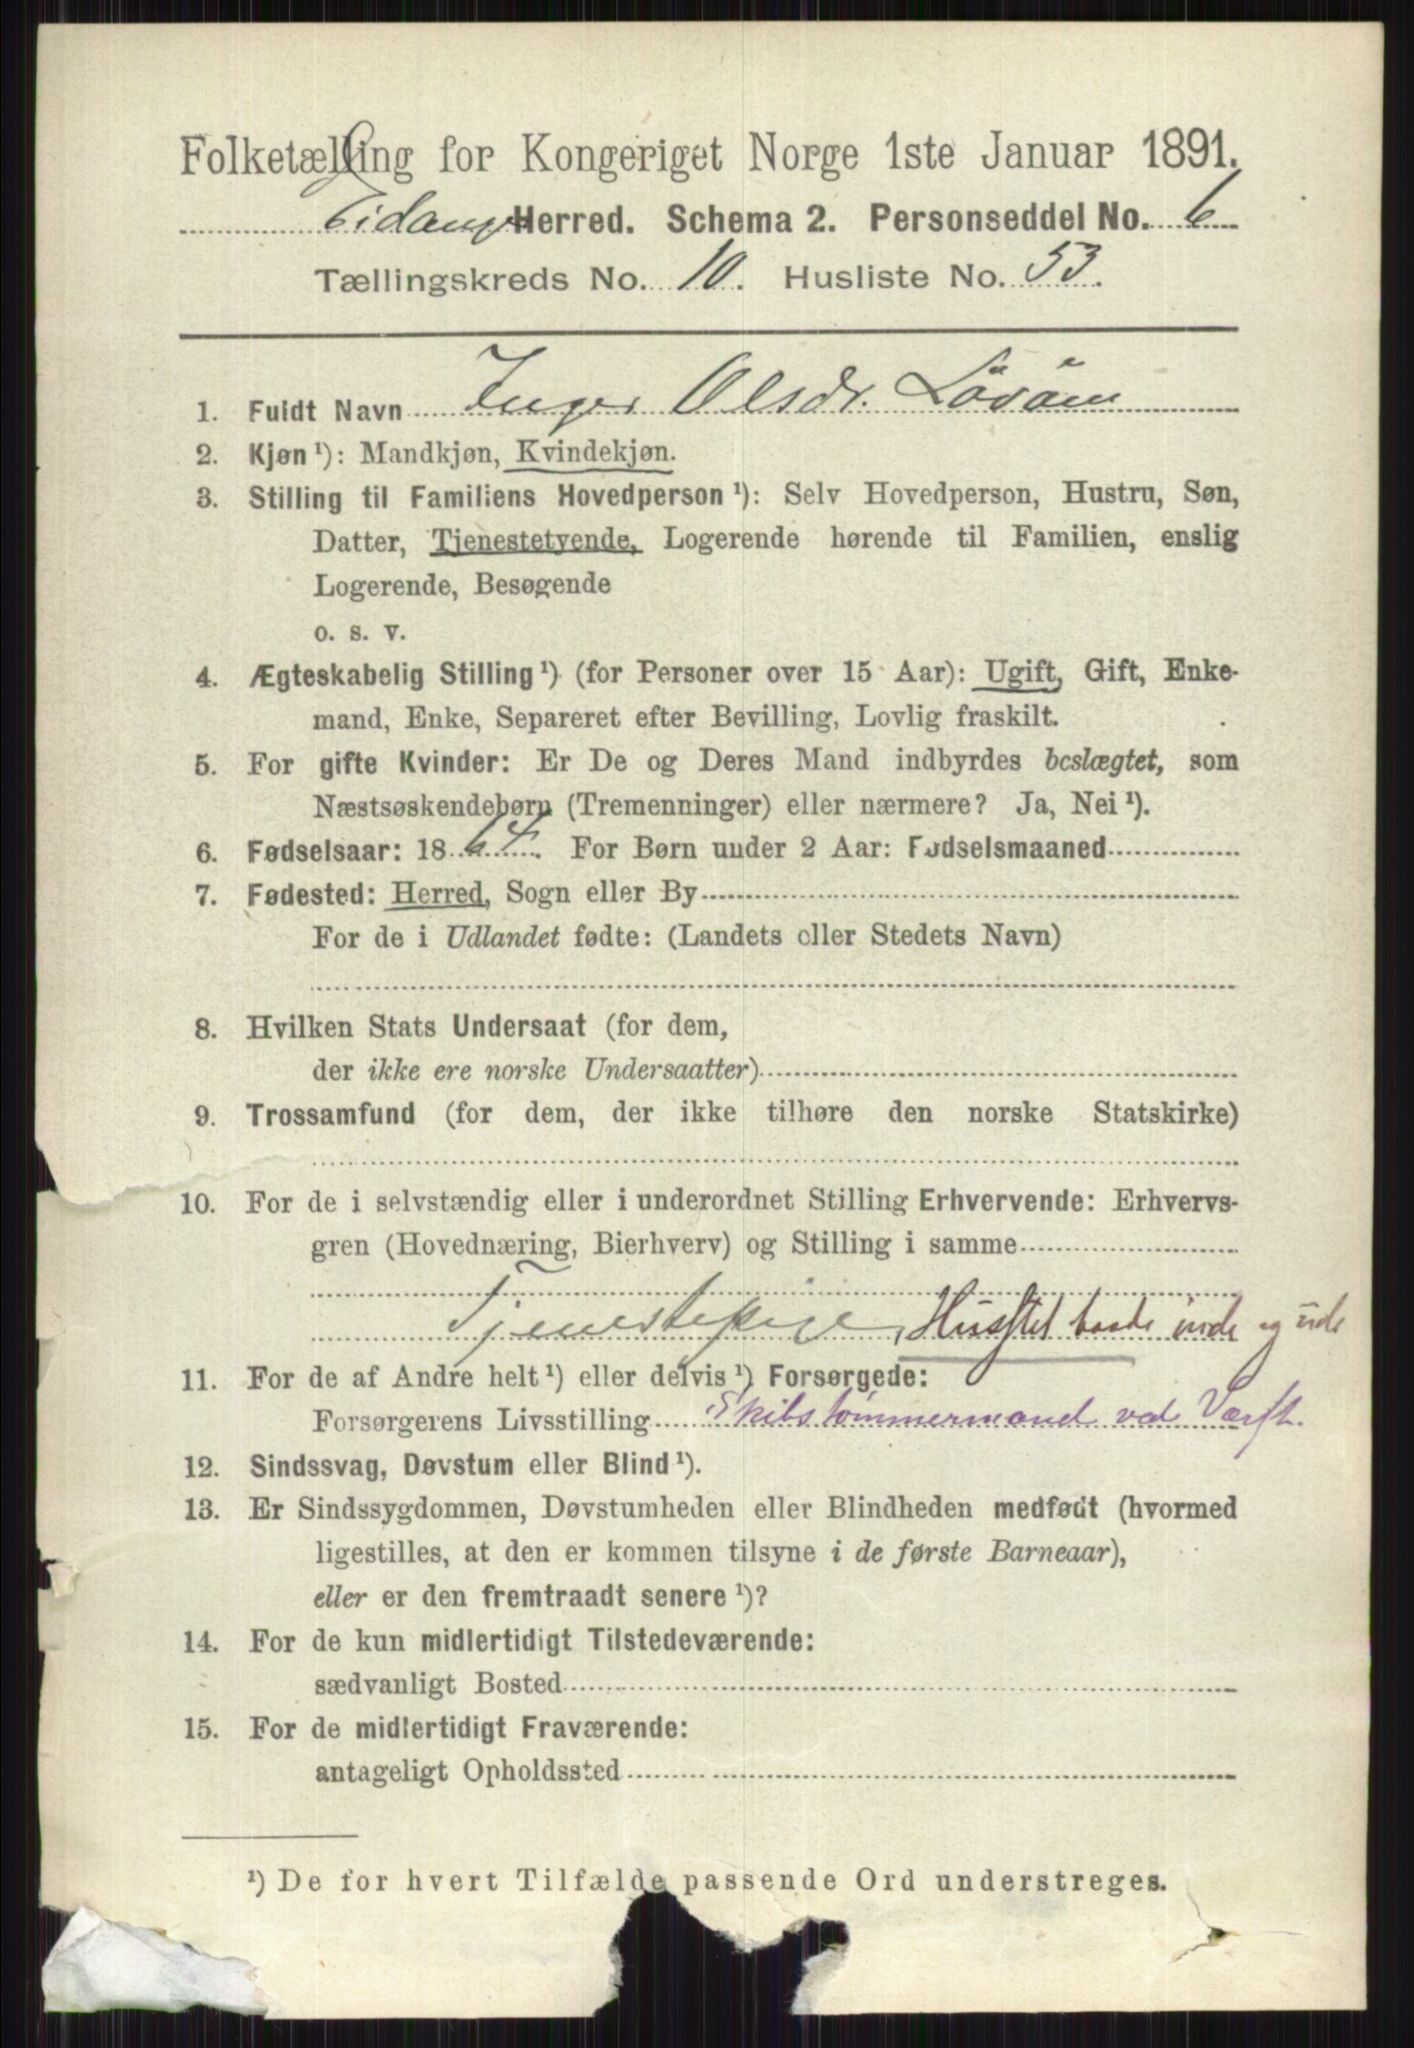 Folketælling for Kongeriget Norge 1ste Januar 1891.
Eidanger Herred. Schema 2. Personseddel No. 6
Tællingskreds No. 10. Husliste No. 53.
1. Fuldt Navn Inger Olsdr. Lövöen
2. Kjøn ¹): Mandkjøn, Kvindekjøn.
3. Stilling til Familiens Hovedperson ¹): Selv Hovedperson, Hustru, Søn,
Datter, Tjenestetyende, Logerende hørende til Familien, enslig
Logerende, Besøgende
o. s. v.
4. Ægteskabelig Stilling ¹) (for Personer over 15 Aar): Ugift, Gift, Enke-
mand, Enke, Separeret efter Bevilling, Lovlig fraskilt.
5. For gifte Kvinder: Er De og Deres Mand indbyrdes beslægtet, som
Næstsøskendebørn (Tremenninger) eller nærmere? Ja, Nei ¹).
6. Fødselsaar: 1864. For Børn under 2 Aar: Fødselsmaaned
7. Fødested: Herred, Sogn eller By
For de i Udlandet fødte: (Landets eller Stedets Navn)
8. Hvilken Stats Undersaat (for dem,
der ikke ere norske Undersaatter)
9. Trossamfund (for dem, der ikke tilhøre den norske Statskirke)
10. For de i selvstændig eller i underordnet Stilling Erhvervende: Erhvervs-
gren (Hovednæring, Bierhverv) og Stilling i samme
Tjenestepige, Husstel baade inde og ude
11. For de af Andre helt ¹) eller delvis ¹) Forsørgede:
Forsørgerens Livsstilling Skibstømmermand ved Værft.
12. Sindssvag, Døvstum eller Blind ¹).
13. Er Sindssygdommen, Døvstumheden eller Blindheden medfødt (hvormed
ligestilles, at den er kommen tilsyne i de første Barneaar),
eller er den fremtraadt senere ¹)?
14. For de kun midlertidigt Tilstedeværende:
sædvanligt Bosted
15. For de midlertidigt Fraværende:
antageligt Opholdssted
¹) De for hvert Tilfælde passende Ord understreges.